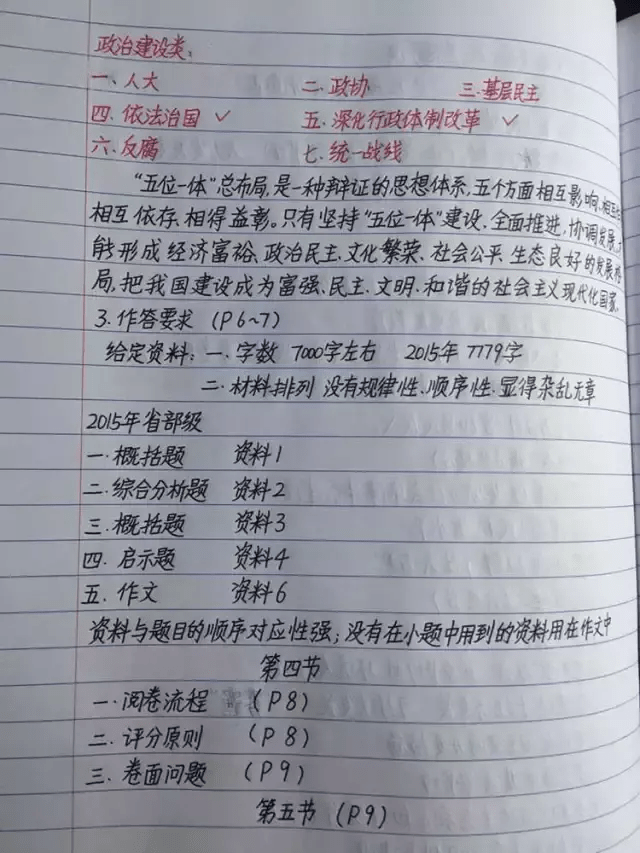 政治建设类:
一、人大 二、政协 三、基层民主
四、依法治国 ✓ 五、深化行政体制改革 ✓
六、反腐 七、统一战线
“五位一体”总布局,是一种辩证的思想体系,五个方面相互影响、相互
相互依存、相得益彰。只有坚持“五位一体”建设、全面推进,协调发展,
能形成经济富裕、政治民主、文化繁荣、社会公平、生态良好的发展格
局,把我国建设成为富强、民主、文明、和谐的社会主义现代化国家。
3.作答要求 (P6~7)
给定资料:一.字数 7000字左右 2015年 7779字
二.材料排列 没有规律性、顺序性,显得杂乱无章
2015年省部级
一.概括题 资料1
二.综合分析题 资料2
三.概括题 资料3
四.启示题 资料4
五.作文 资料6
资料与题目的顺序对应性强;没有在小题中用到的资料用在作文中
第四节
一.阅卷流程 (P8)
二.评分原则 (P8)
三.卷面问题 (P9)
第五节 (P9)